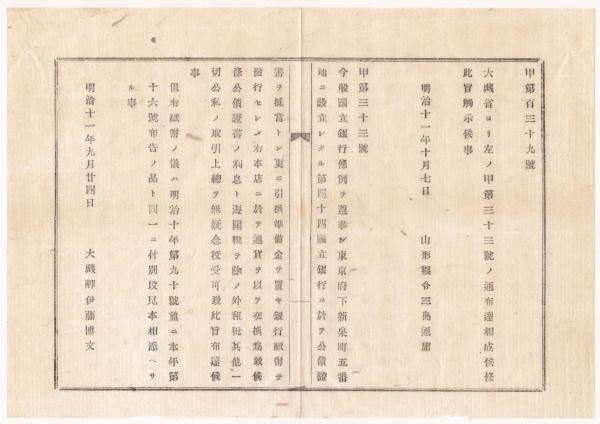 甲第百三十九號
大藏省ヨリ左ノ甲第三十三號ノ通布達相成候條
此旨觸示候事
明治十一年十月七日
山形縣令三島通庸
甲第三十三號
今般國立銀行條例ヲ遵奉シ東京府下新泉町五番
地ニ設立シタル第四十四國立銀行ニ於テ公債證
書ヲ抵當トシ更ニ引換準備金ヲ置キ銀行紙幣ヲ
發行セシメ右本店ニ於テ通貨ヲ以テ交換爲致候
條公債證書ノ利息ト海關稅ヲ除ノ外租稅其他一
切公私ノ取引上總テ無疑念授受可致此旨布達候
事
但右紙幣ノ儀ハ明治十年第九十號並ニ本年第
十六號布告ノ品ト同一ニ付別段見本相添ヘサ
ル事
明治十一年九月廿四日
大藏卿伊藤博文